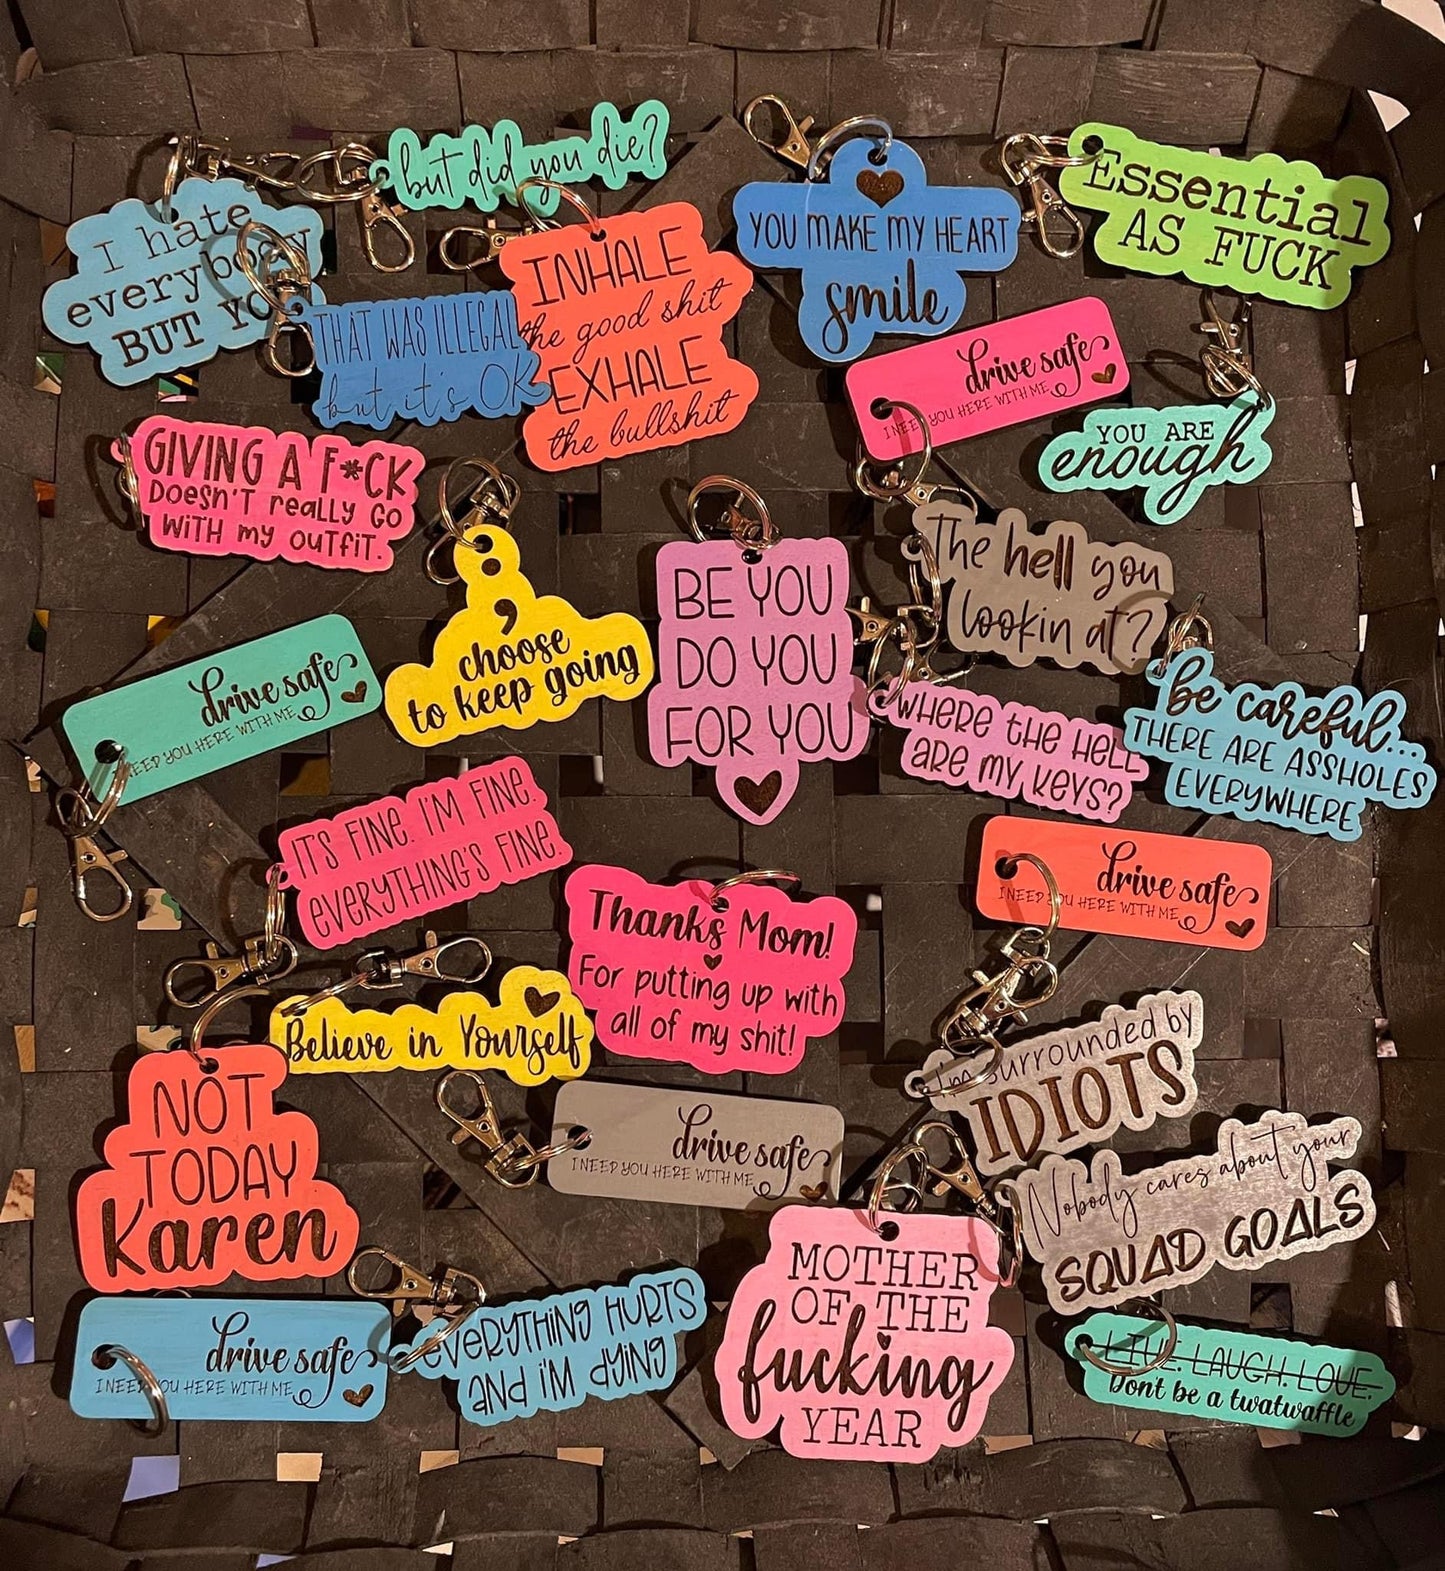 but did you die?
I hate
everybody
BUT YOU
THAT WAS ILLEGAL
but it's OK
INHALE
the good shit
EXHALE
the bullshit
YOU MAKE MY HEART
smile
Essential
AS FUCK
drive safe
I NEED YOU HERE WITH ME
YOU ARE
enough
GIVING A F*CK
DOESN'T REALLY GO
WITH MY OUTFIT.
;
choose
to keep going
BE YOU
DO YOU
FOR YOU
The hell you
lookin at?
WHERE THE HELL
ARE MY KEYS?
be careful...
THERE ARE ASSHOLES
EVERYWHERE
drive safe
NEED YOU HERE WITH ME
IT'S FINE. I'M FINE.
EVERYTHING'S FINE.
Thanks Mom!
For putting up with
all of my shit!
drive safe
I NEED YOU HERE WITH ME
Believe in Yourself
NOT
TODAY
Karen
drive safe
I NEED YOU HERE WITH ME
I'm surrounded by
IDIOTS
Nobody cares about your
SQUAD GOALS
drive safe
I NEED YOU HERE WITH ME
EVERYTHING HURTS
AND I'M DYING
MOTHER
OF THE
fucking
YEAR
LIVE. LAUGH. LOVE.
Don't be a twatwaffle